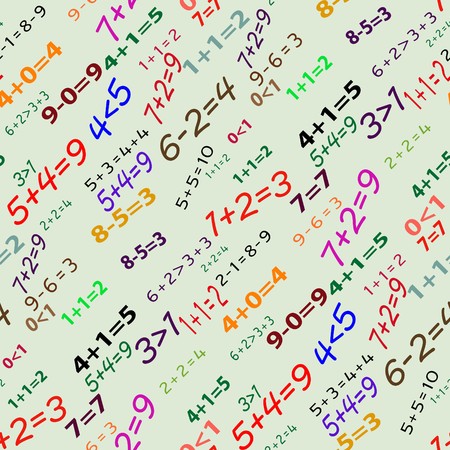 -1=8-9
7+2
4+1=5
7=7
8-5=3
6+2>3+3
2+2=4
4+0=4
9-0=9
1+1=2
7+2=9
1+1=2
7+2=9
9-6=3
0<1
1+1=2
6+2>3+3
4<5
6-2=4
4+1=5
3>7
1+1=2
3>7
5+4=9
5+3=4+4
5+4=9
5+5=10
1+1=2
0<1
1+1=2
5+4=9
2+2=4
4+1=5
2+2=4
8-5=3
7+2=3
7=7
9-6=3
7+2=9
0<1
7=7
=2
7+2=9
9-6=3
0<1
1+1=2
8-5=3
6+2>3+3
2+2=4
2-1=8-9
4+0=4
9-0=9
4+1=5
1+1=2
7+2=9
1+1=2
4+1=5
5+4=9
3>7
1+1=2
2+2=4
6+2>3+3
4<5
6-2=4
0<1
1+1=2
+2=3
7=7
9-6=3
2=9
4+1=5
0<1
7=7
3>7
5+4=9
2+2=4
5+3=4+4
5+4=9
8-5=3
5+5=10